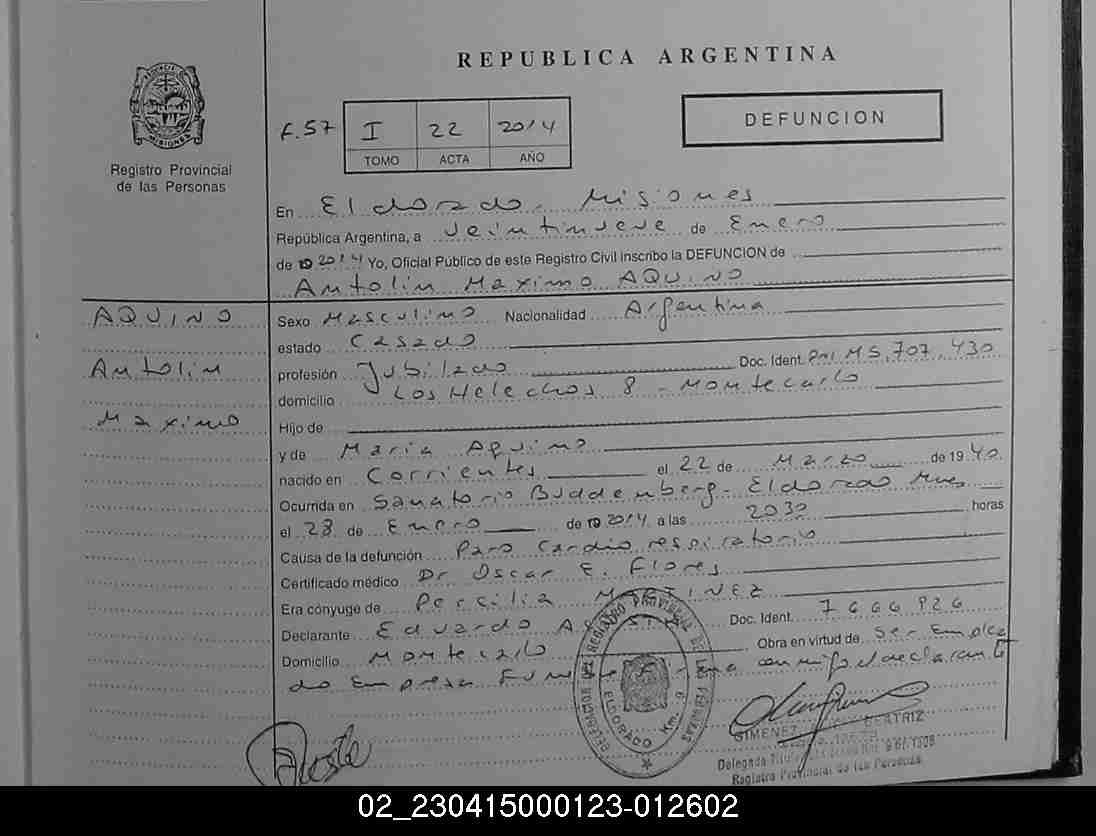 REPUBLICA ARGENTINA
MISIONES
Registro Provincial
de las Personas
F.57 I 22 2014
TOMO ACTA AÑO
DEFUNCION
En Eldorado. Misiones
República Argentina, a veintinueve de Enero
de 2014 Yo, Oficial Público de este Registro Civil inscribo la DEFUNCION de
Antolin Maximo AQUINO
AQUINO
Antolin
Maximo
Sexo Masculino Nacionalidad Argentina
estado Casado
profesión Jubilado Doc. Ident. DNI M5.707.430
domicilio Los Helechos 8 - Montecarlo
Hijo de
y de Maria Aquino
nacido en Corrientes el 22 de Marzo de 1940
Ocurrida en Sanatorio Buddenberg - Eldorado Mnes
el 28 de Enero de 2014 a las 2030 horas
Causa de la defunción Paro Cardio respiratorio
Certificado médico Dr Oscar E. Flores
Era cónyuge de Percilia MARTINEZ
Declarante Eduardo Doc. Ident. 7666926
Domicilio Montecarlo Obra en virtud de Ser Emplea
do Empresa Funebre Firma conmigo el declarante
DELEGACION DEL REGISTRO PROVINCIAL DE LAS PERSONAS
ELDORADO Km. 9
GIMENEZ BEATRIZ
Delegada
Registro Provincial de las Personas
02_230415000123-012602